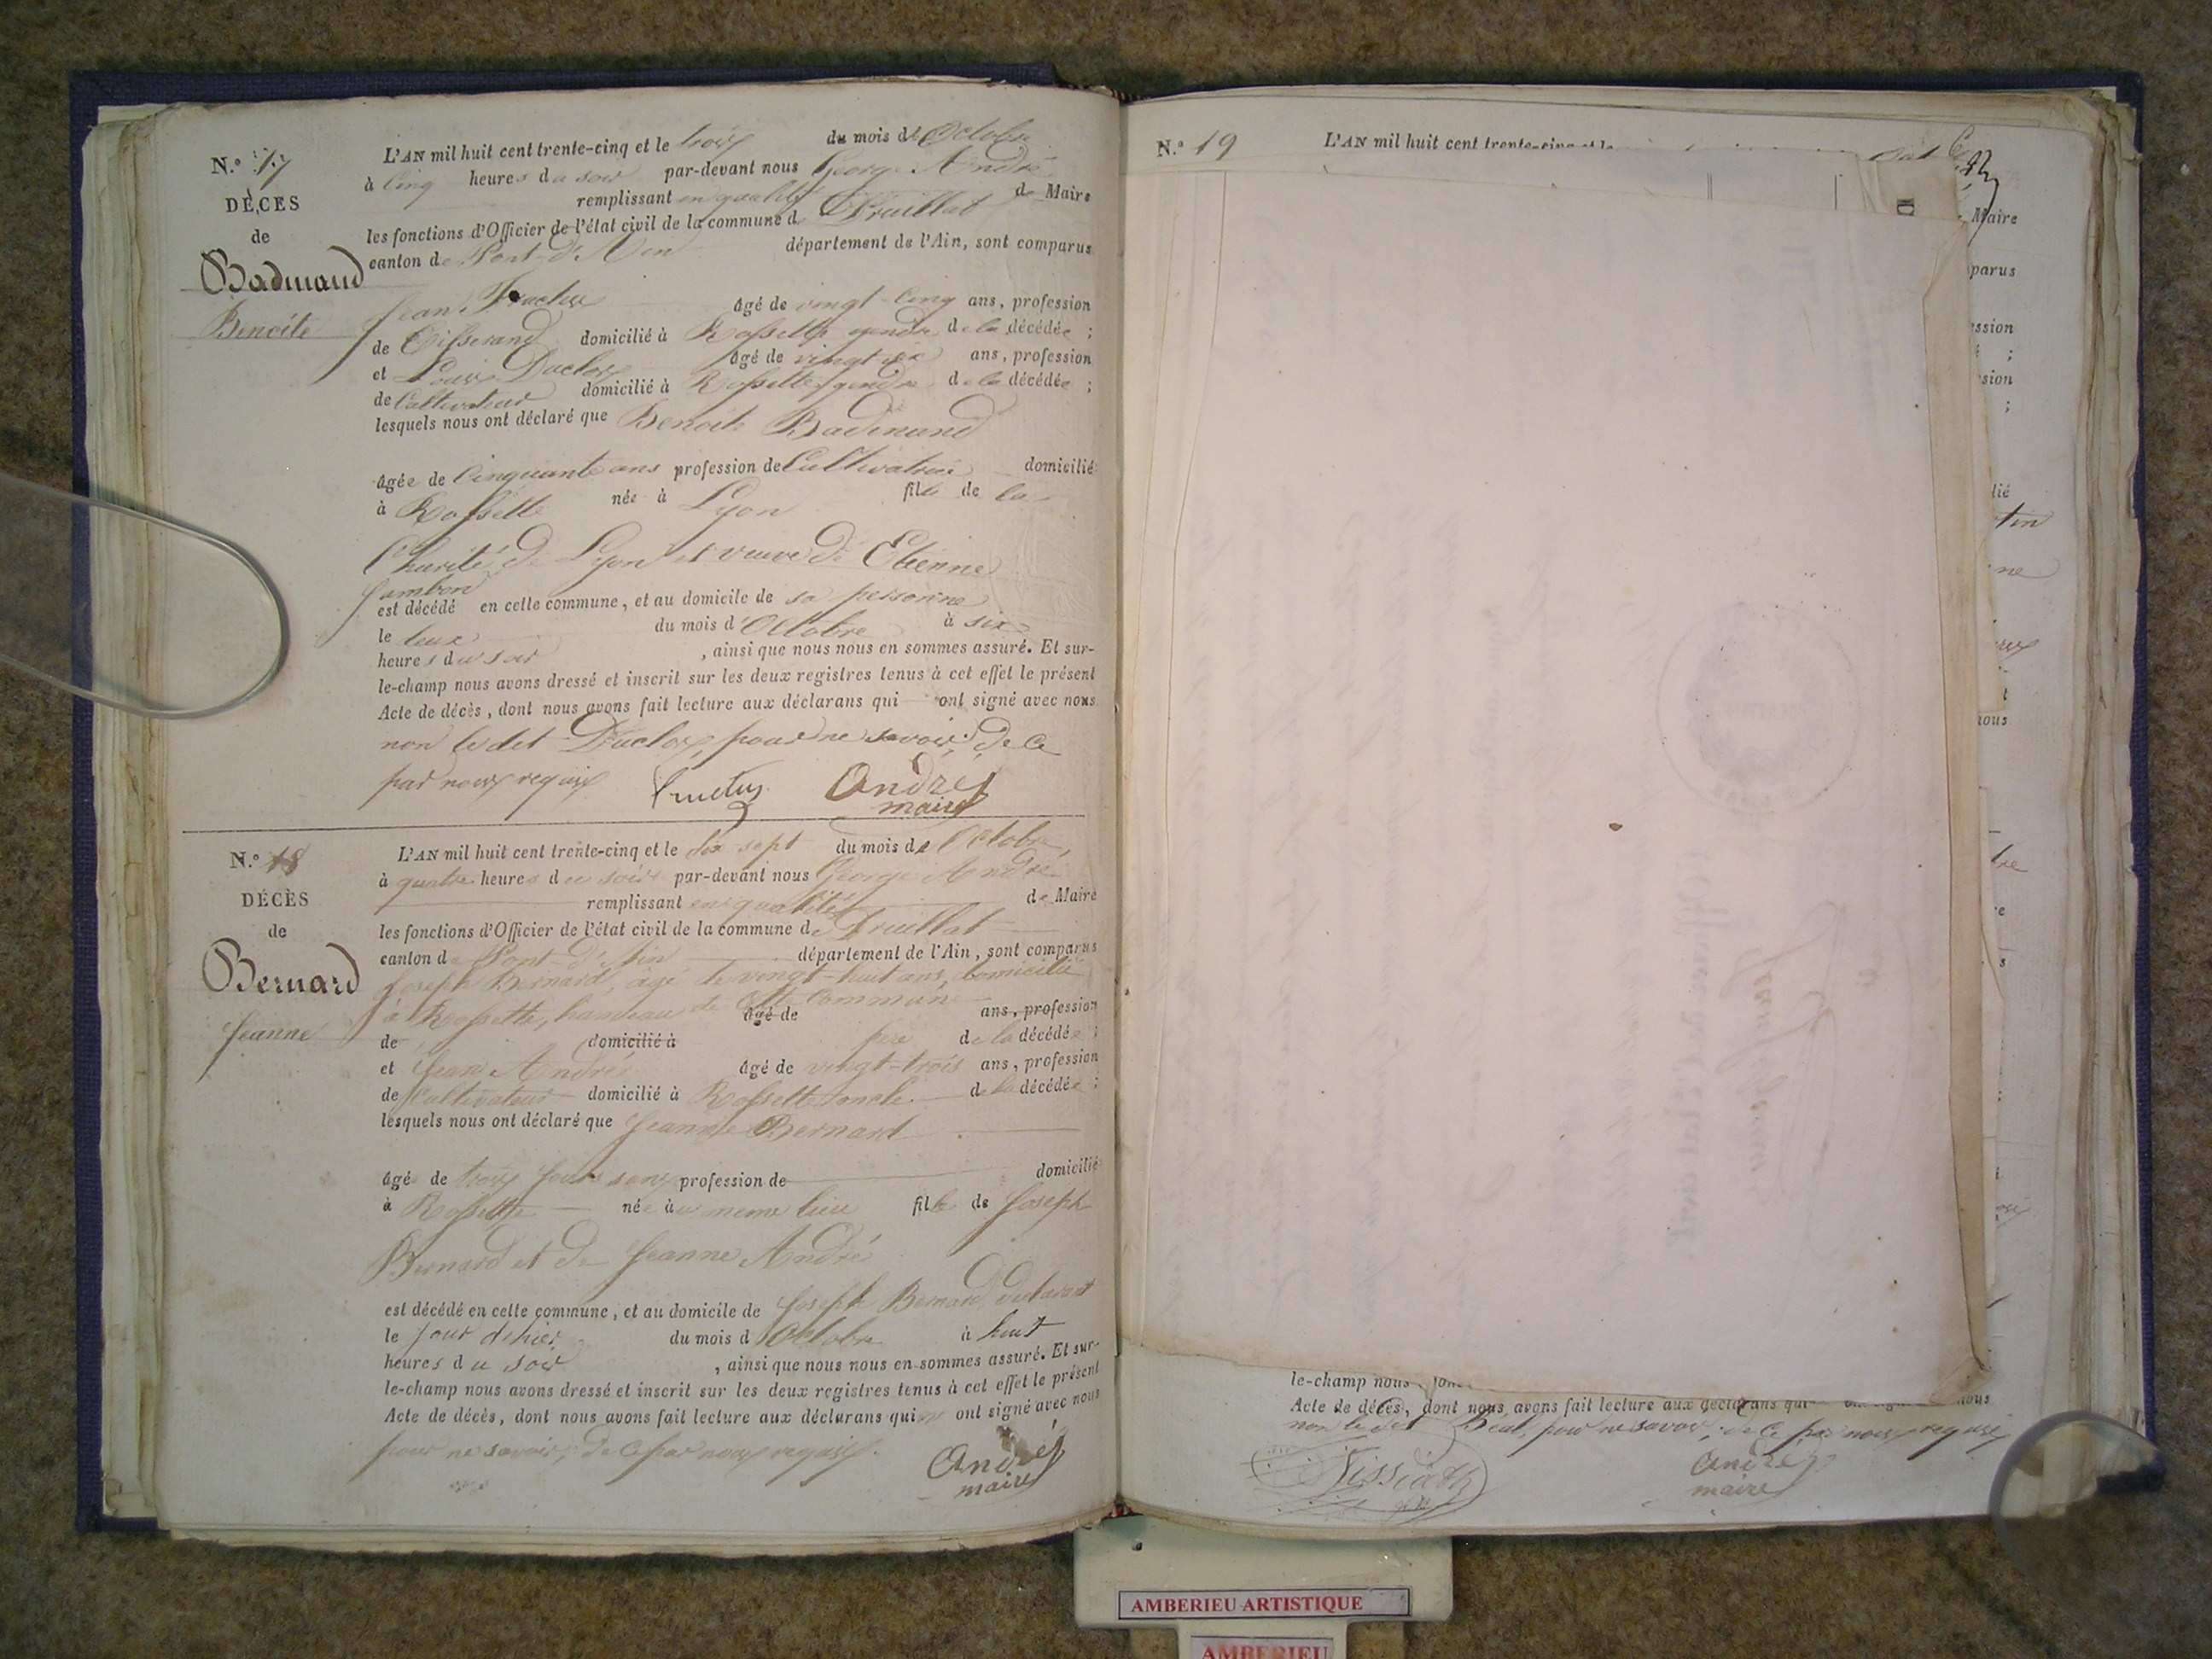 N.° 17
DÉCES
de
Badinand
Benoite
L'AN mil huit cent trente-cinq et le trois du mois de Octobre
à cinq heures du soir par-devant nous George André
remplissant en qualité de Maire
les fonctions d'Officier de l'état civil de la commune de Druillat
canton de Pont-d'Ain département de l'Ain, sont comparus
Jean Fructus âgé de vingt-cinq ans, profession
de Tisserand domicilié à Rossette gendre de la décédée ;
et Louis Duclos âgé de vingt-six ans, profession
de Cultivateur domicilié à Rossette, gendre de la décédée ;
lesquels nous ont déclaré que Benoite Badinand
âgée de Cinquante ans profession de Cultivatrice domicilié
à Rossette née à Lyon fille de la
Charité de Lyon et veuve de Etienne
Jambon
est décédé en cette commune, et au domicile de sa personne
le deux du mois d'Octobre à six
heures du soir , ainsi que nous nous en sommes assuré. Et sur-
le-champ nous avons dressé et inscrit sur les deux registres tenus à cet effet le présent
Acte de décès, dont nous avons fait lecture aux déclarans qui ont signé avec nous
non le dit Duclos, pour ne savoir. De ce
par nous requis Fructus André
maire
N.° 18
DÉCÈS
de
Bernard
Jeanne
L'AN mil huit cent trente-cinq et le dix sept du mois de Octobre,
à quatre heures du soir par-devant nous George André
remplissant en qualité de Maire
les fonctions d'Officier de l'état civil de la commune de Druillat
canton de Pont-d'Ain département de l'Ain, sont comparus
Joseph Bernard, âgé de vingt-huit ans, domicilié
à Rossette, hameau de cette Commune
âgé de ans, profession
de domicilié à père de la décédée ;
et Jean André âgé de vingt-trois ans, profession
de Cultivateur domicilié à Rossette oncle de la décédée ;
lesquels nous ont déclaré que Jeanne Bernard
âgé de trois jours sans profession de domicilié
à Rossette née au meme lieu fille de Joseph
Bernard et de Jeanne André
est décédé en cette commune, et au domicile de Joseph Bernard déclarant
le jour d'hier du mois d'Octobre à huit
heures du soir , ainsi que nous nous en sommes assuré. Et sur-
le-champ nous avons dressé et inscrit sur les deux registres tenus à cet effet le présent
Acte de décès, dont nous avons fait lecture aux déclarans qui ont signé avec nous
pour ne savoir, de ce par nous requis.
André
maire
N.° 19
L'AN mil huit cent trente-cinq et le
Maire
parus
ssion
;
sion
;
lié
tin
ne
t
nous
le-champ nous
Acte de décès, dont nous avons fait lecture aux déclarans qui nous
non le dit Béal, pour ne savoir, de ce par nous requis
Tissiath
André
maire
AMBERIEU ARTISTIQUE
AMBERIEU